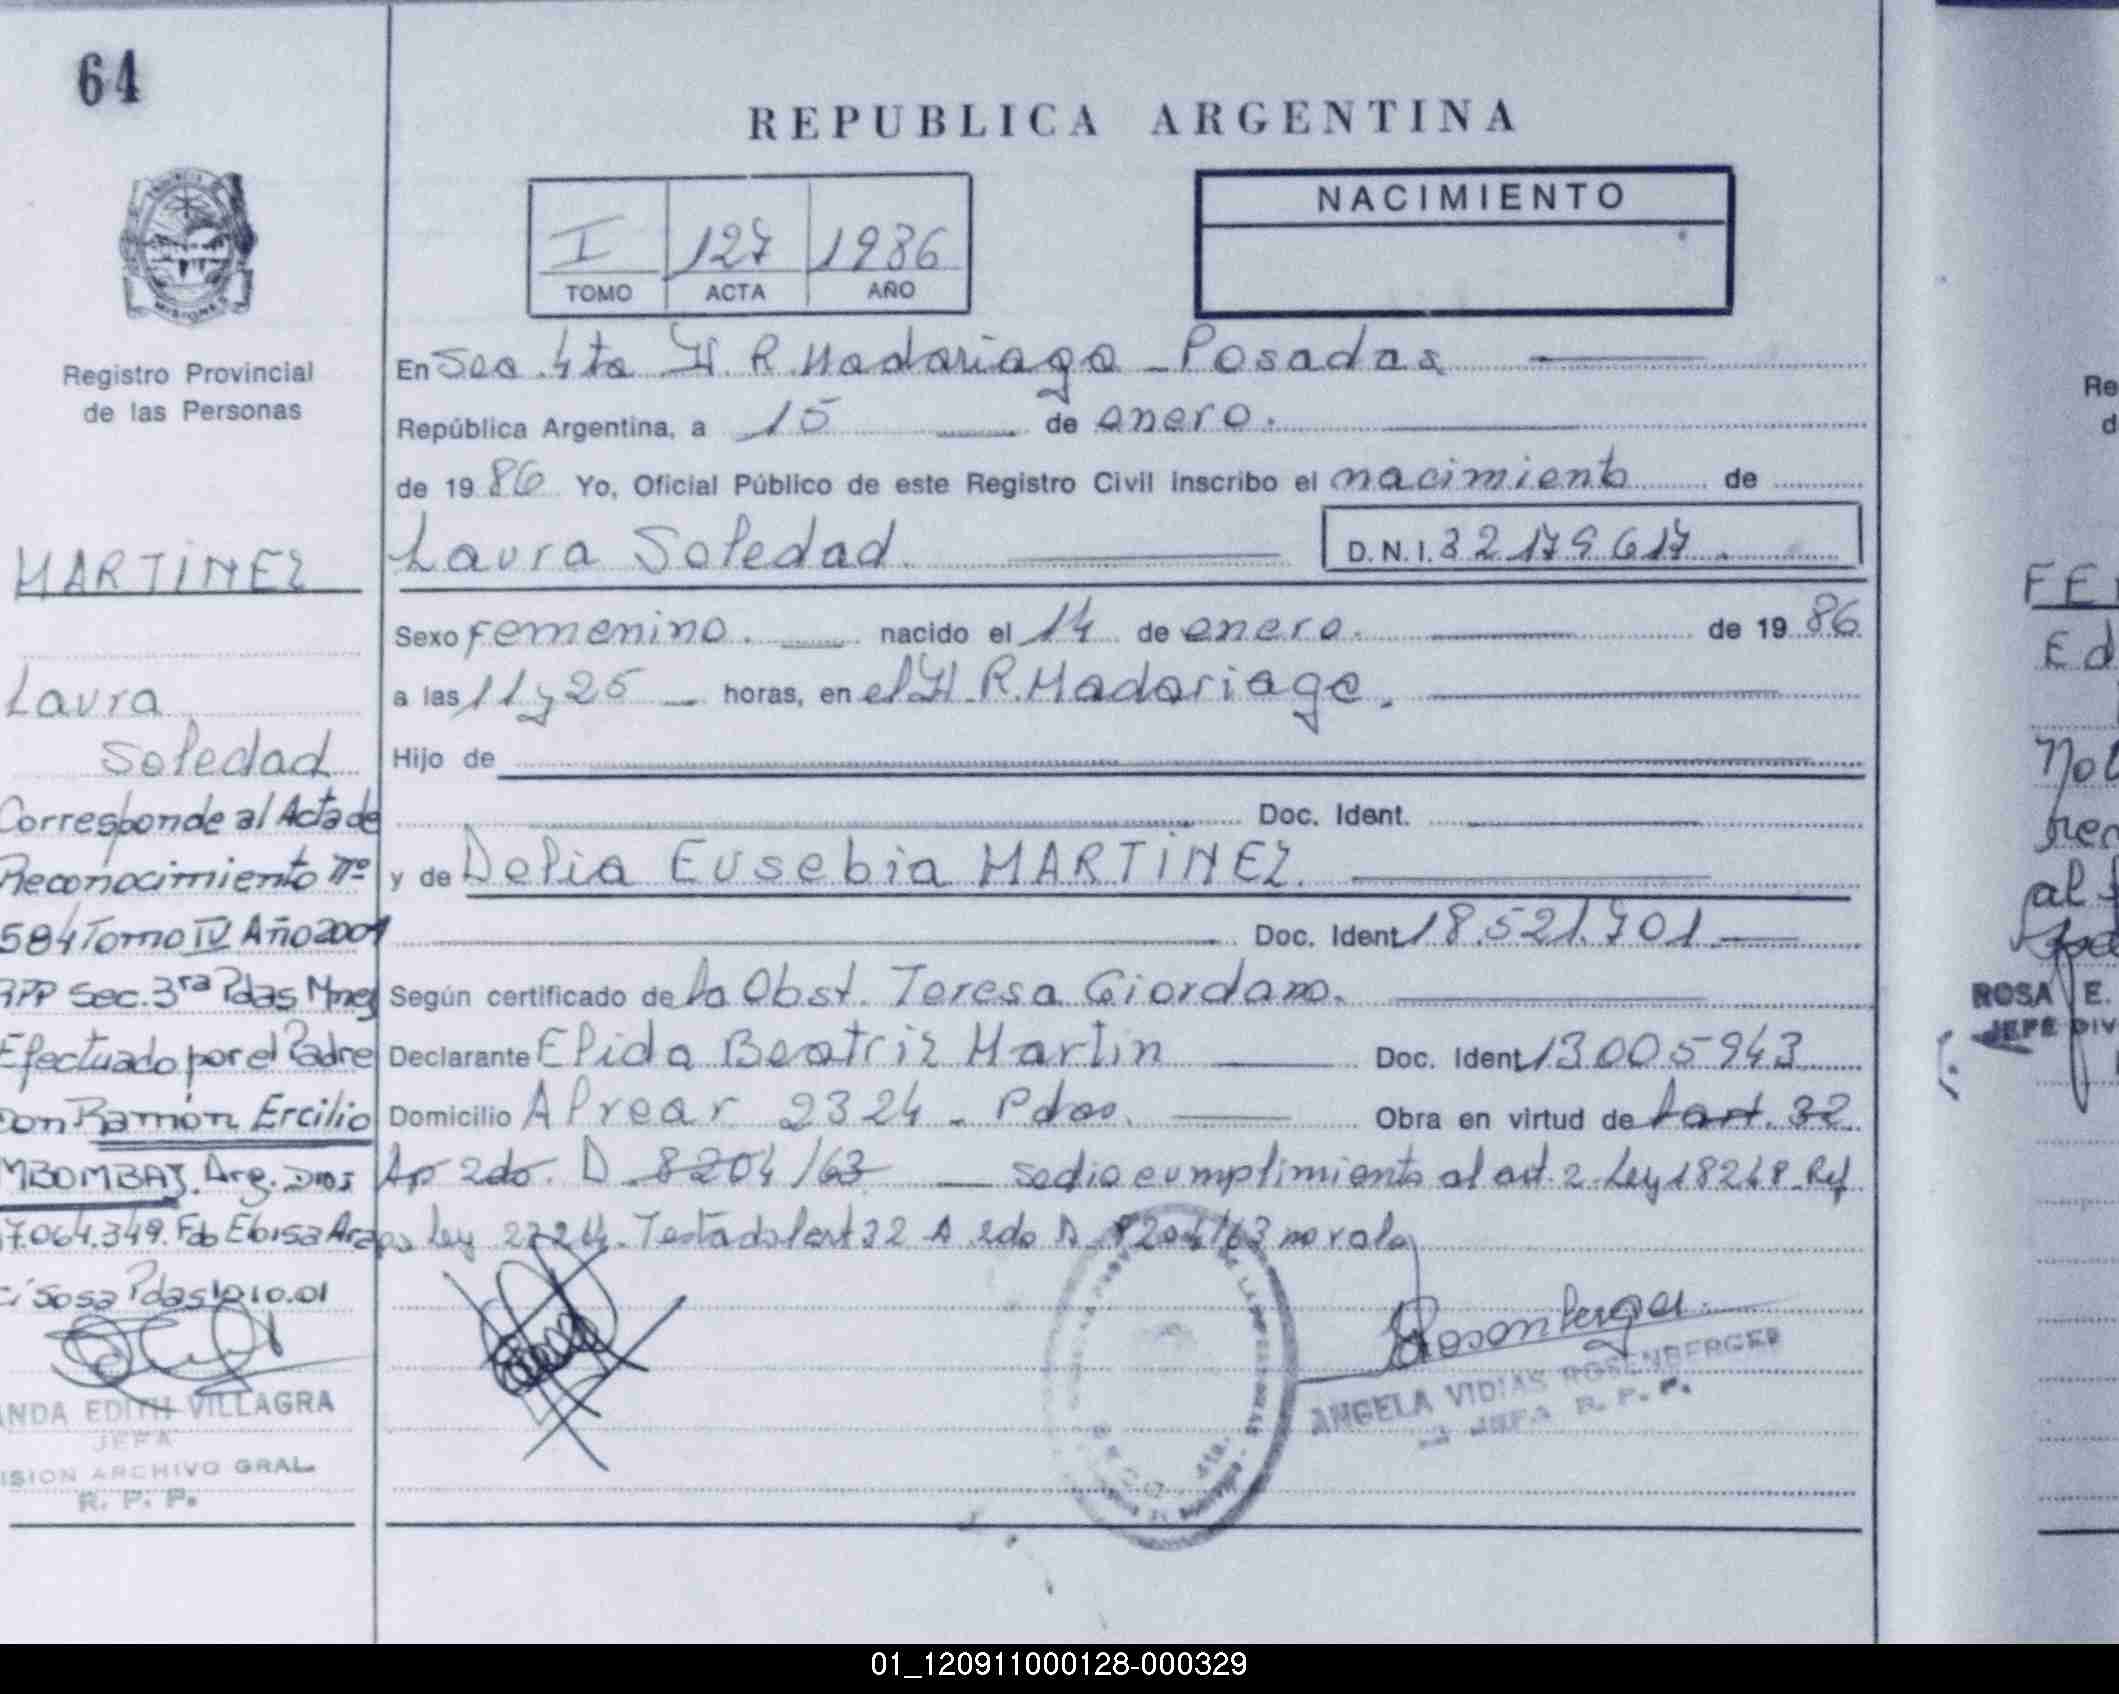 64
REPUBLICA ARGENTINA
I 127 1986
TOMO ACTA AÑO
NACIMIENTO
MISIONES
Registro Provincial
de las Personas
MARTINEZ
Laura
Soledad
Corresponde al Acta de
Reconocimiento Nº
584 Tomo IV Año 2001
RPP Sec. 3ra Pdas Mnes
Efectuado por el Padre
Don Ramón Ercilio
MBOMBAJ. Arg. DNI
17.064.349. Fdo Eloisa
Sosa Pdas 10.01
EDITH VILLAGRA
JEFA
ISION ARCHIVO GRAL.
R. P. P.
En Sec. 4ta H. R. Madariaga - Posadas
República Argentina, a 15 de enero.
de 1986 Yo, Oficial Público de este Registro Civil inscribo el nacimiento de
Laura Soledad. D.N.I. 32179617.
Sexo Femenino. nacido el 14 de enero. de 1986
a las 11 y 25 horas, en el H. R. Madariaga.
Hijo de
Doc. Ident.
y de Delia Eusebia MARTINEZ.
Doc. Ident 18.521.701
Según certificado de la Obst. Teresa Giordano.
Declarante Elida Beatriz Martin Doc. Ident 13005943
Domicilio Alvear 2324 - Pdas. Obra en virtud de l art. 32
Ap 2do. D. 8204/63 se dio cumplimiento al art. 2 Ley 18248 Ref
Ley 23264. Testado l art 32 A 2do D 8204/63 no vale
Rosenberger
ANGELA VIDIAS ROSENBERGER
JEFA R. P. P.
ROSA E.
JEFE DIV
01_120911000128-000329